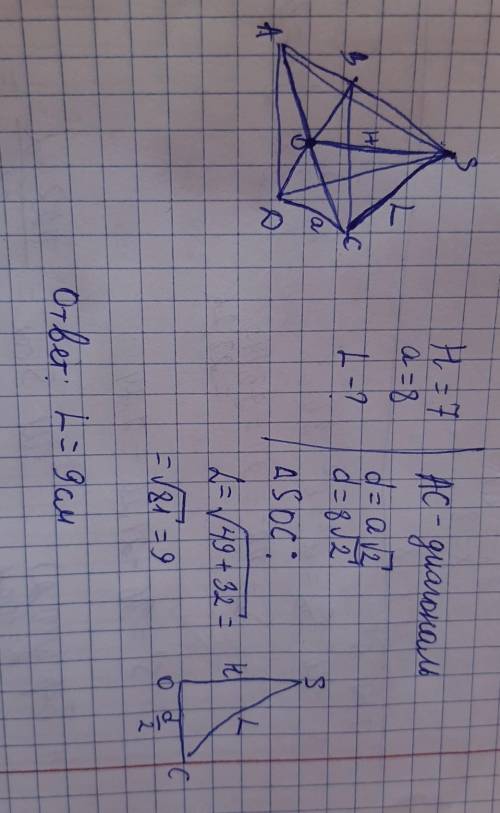 A
B
S
H
O
L
D
a
C
H = 7
a = 8
L - ?
AC - диагональ
d = a√2
d = 8√2
ΔSOC:
L = √49 + 32 =
= √81 = 9
S
H
L
O
d/2
C
Ответ: L = 9см